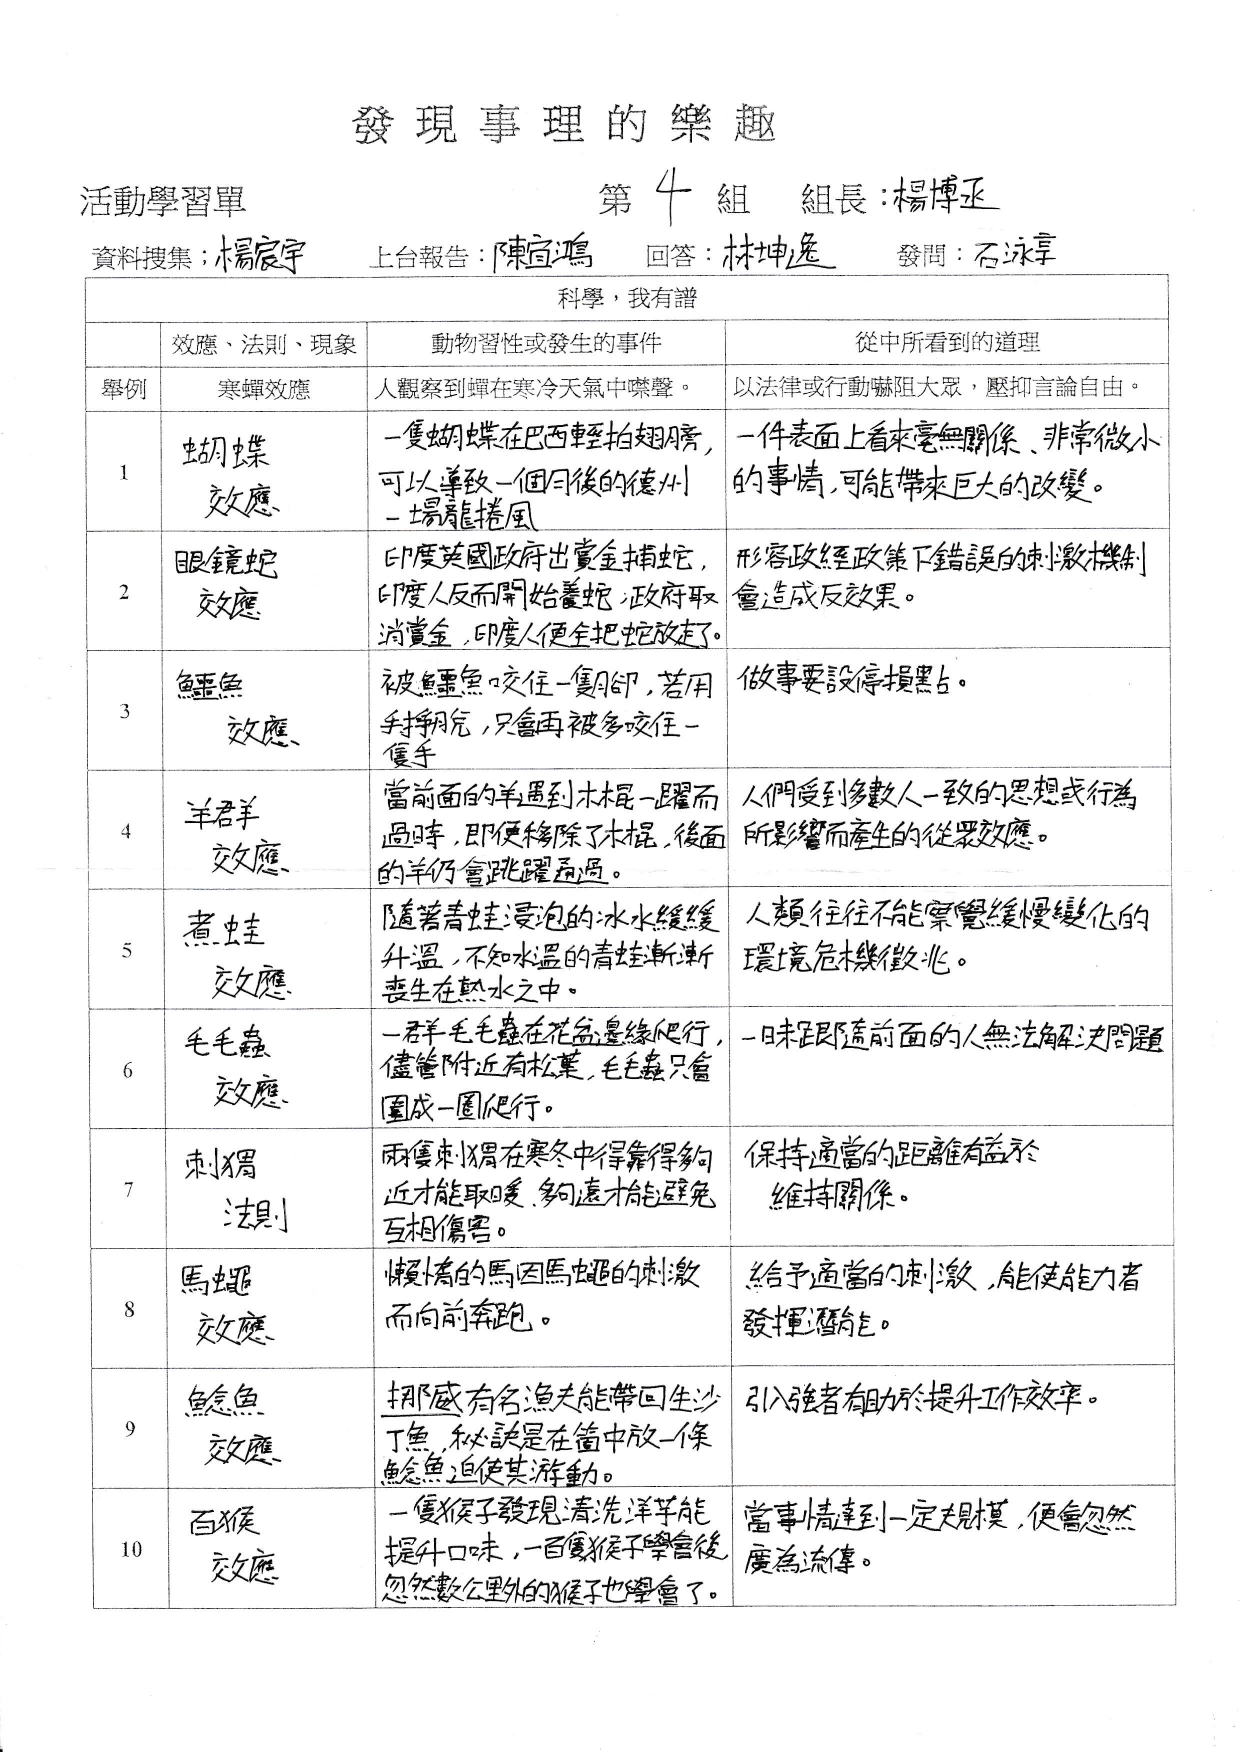 發現事理的樂趣
活動學習單 第4組 組長:楊博丞
資料搜集;楊宸宇 上台報告:陳宣鴻 回答:林坤逸 發問:石泳享
科學,我有譜
效應、法則、現象 動物習性或發生的事件 從中所看到的道理
舉例 寒蟬效應 人觀察到蟬在寒冷天氣中噤聲。 以法律或行動嚇阻大眾,壓抑言論自由。
1
蝴蝶
效應
一隻蝴蝶在巴西輕拍翅膀,
可以導致一個月後的德州
一場龍捲風
一件表面上看來毫無關係、非常微小
的事情,可能帶來巨大的改變。
2
眼鏡蛇
效應
印度英國政府出賞金捕蛇,
印度人反而開始養蛇;政府取
消賞金,印度人便全把蛇放走了。
形容政經政策下錯誤的刺激機制
會造成反效果。
3
鱷魚
效應
被鱷魚咬住一隻腳,若用
手掙脫,只會再被多咬住一
隻手
做事要設停損點。
4
羊群
效應
當前面的羊遇到木棍一躍而
過時,即便移除了木棍,後面
的羊仍會跳躍通過。
人們受到多數人一致的思想或行為
所影響而產生的從眾效應。
5
煮蛙
效應
隨著青蛙浸泡的冰水緩緩
升溫,不知水溫的青蛙漸漸
喪生在熱水之中。
人類往往不能察覺緩慢變化的
環境危機徵兆。
6
毛毛蟲
效應
一群毛毛蟲在花盆邊緣爬行,
儘管附近有松葉,毛毛蟲只會
圍成一圈爬行。
一昧跟隨前面的人無法解決問題
7
刺猬
法則
兩隻刺猬在寒冬中得靠得夠
近才能取暖、夠遠才能避免
互相傷害。
保持適當的距離有益於
維持關係。
8
馬蠅
效應
懶惰的馬因馬蠅的刺激
而向前奔跑。
給予適當的刺激,能使能力者
發揮潛能。
9
鯰魚
效應
挪威有名漁夫能帶回生沙
丁魚,秘訣是在箇中放一條
鯰魚迫使其游動。
引入強者有助於提升工作效率。
10
百猴
效應
一隻猴子發現清洗洋芋能
提升口味,一百隻猴子學會後
忽然數公里外的猴子也學會了。
當事情達到一定規模,便會忽然
廣為流傳。